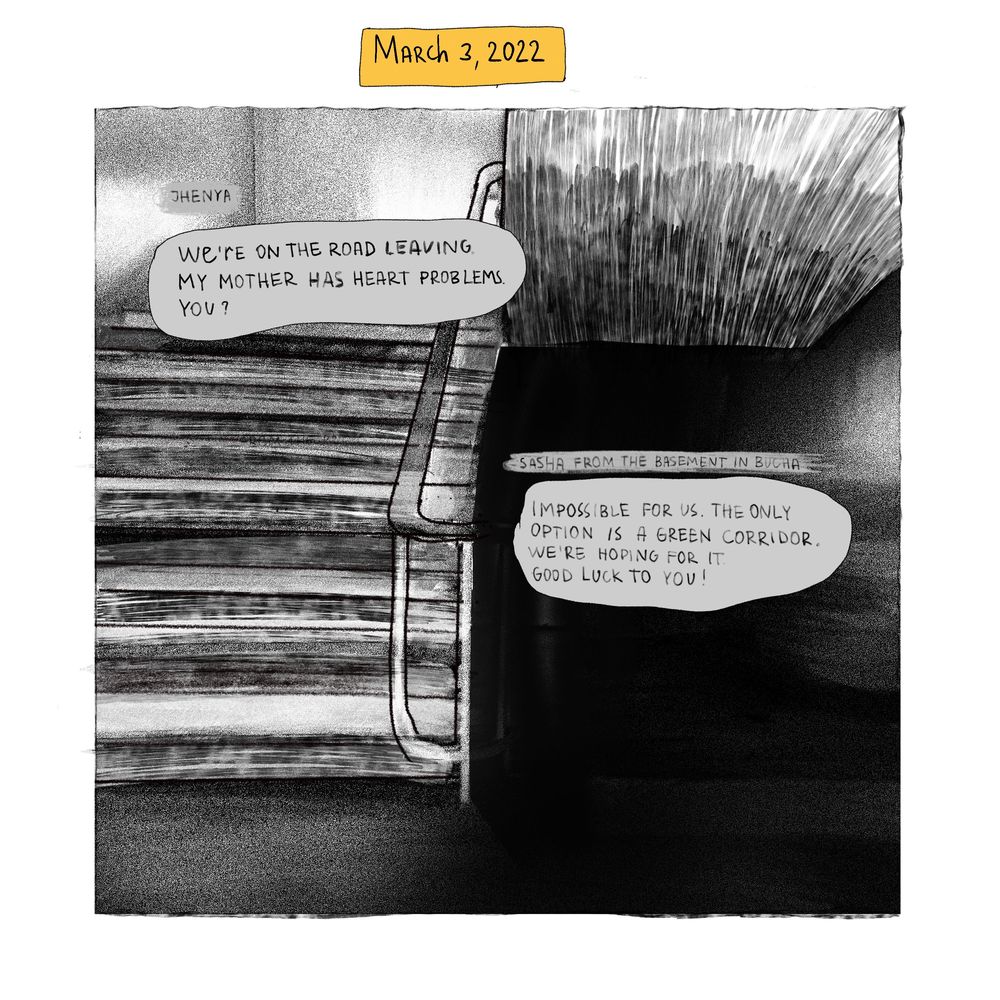 March 3, 2022
JHENYA
WE'RE ON THE ROAD LEAVING.
MY MOTHER HAS HEART PROBLEMS.
YOU?
SASHA FROM THE BASEMENT IN BUCHA
IMPOSSIBLE FOR US. THE ONLY
OPTION IS A GREEN CORRIDOR.
WE'RE HOPING FOR IT.
GOOD LUCK TO YOU!